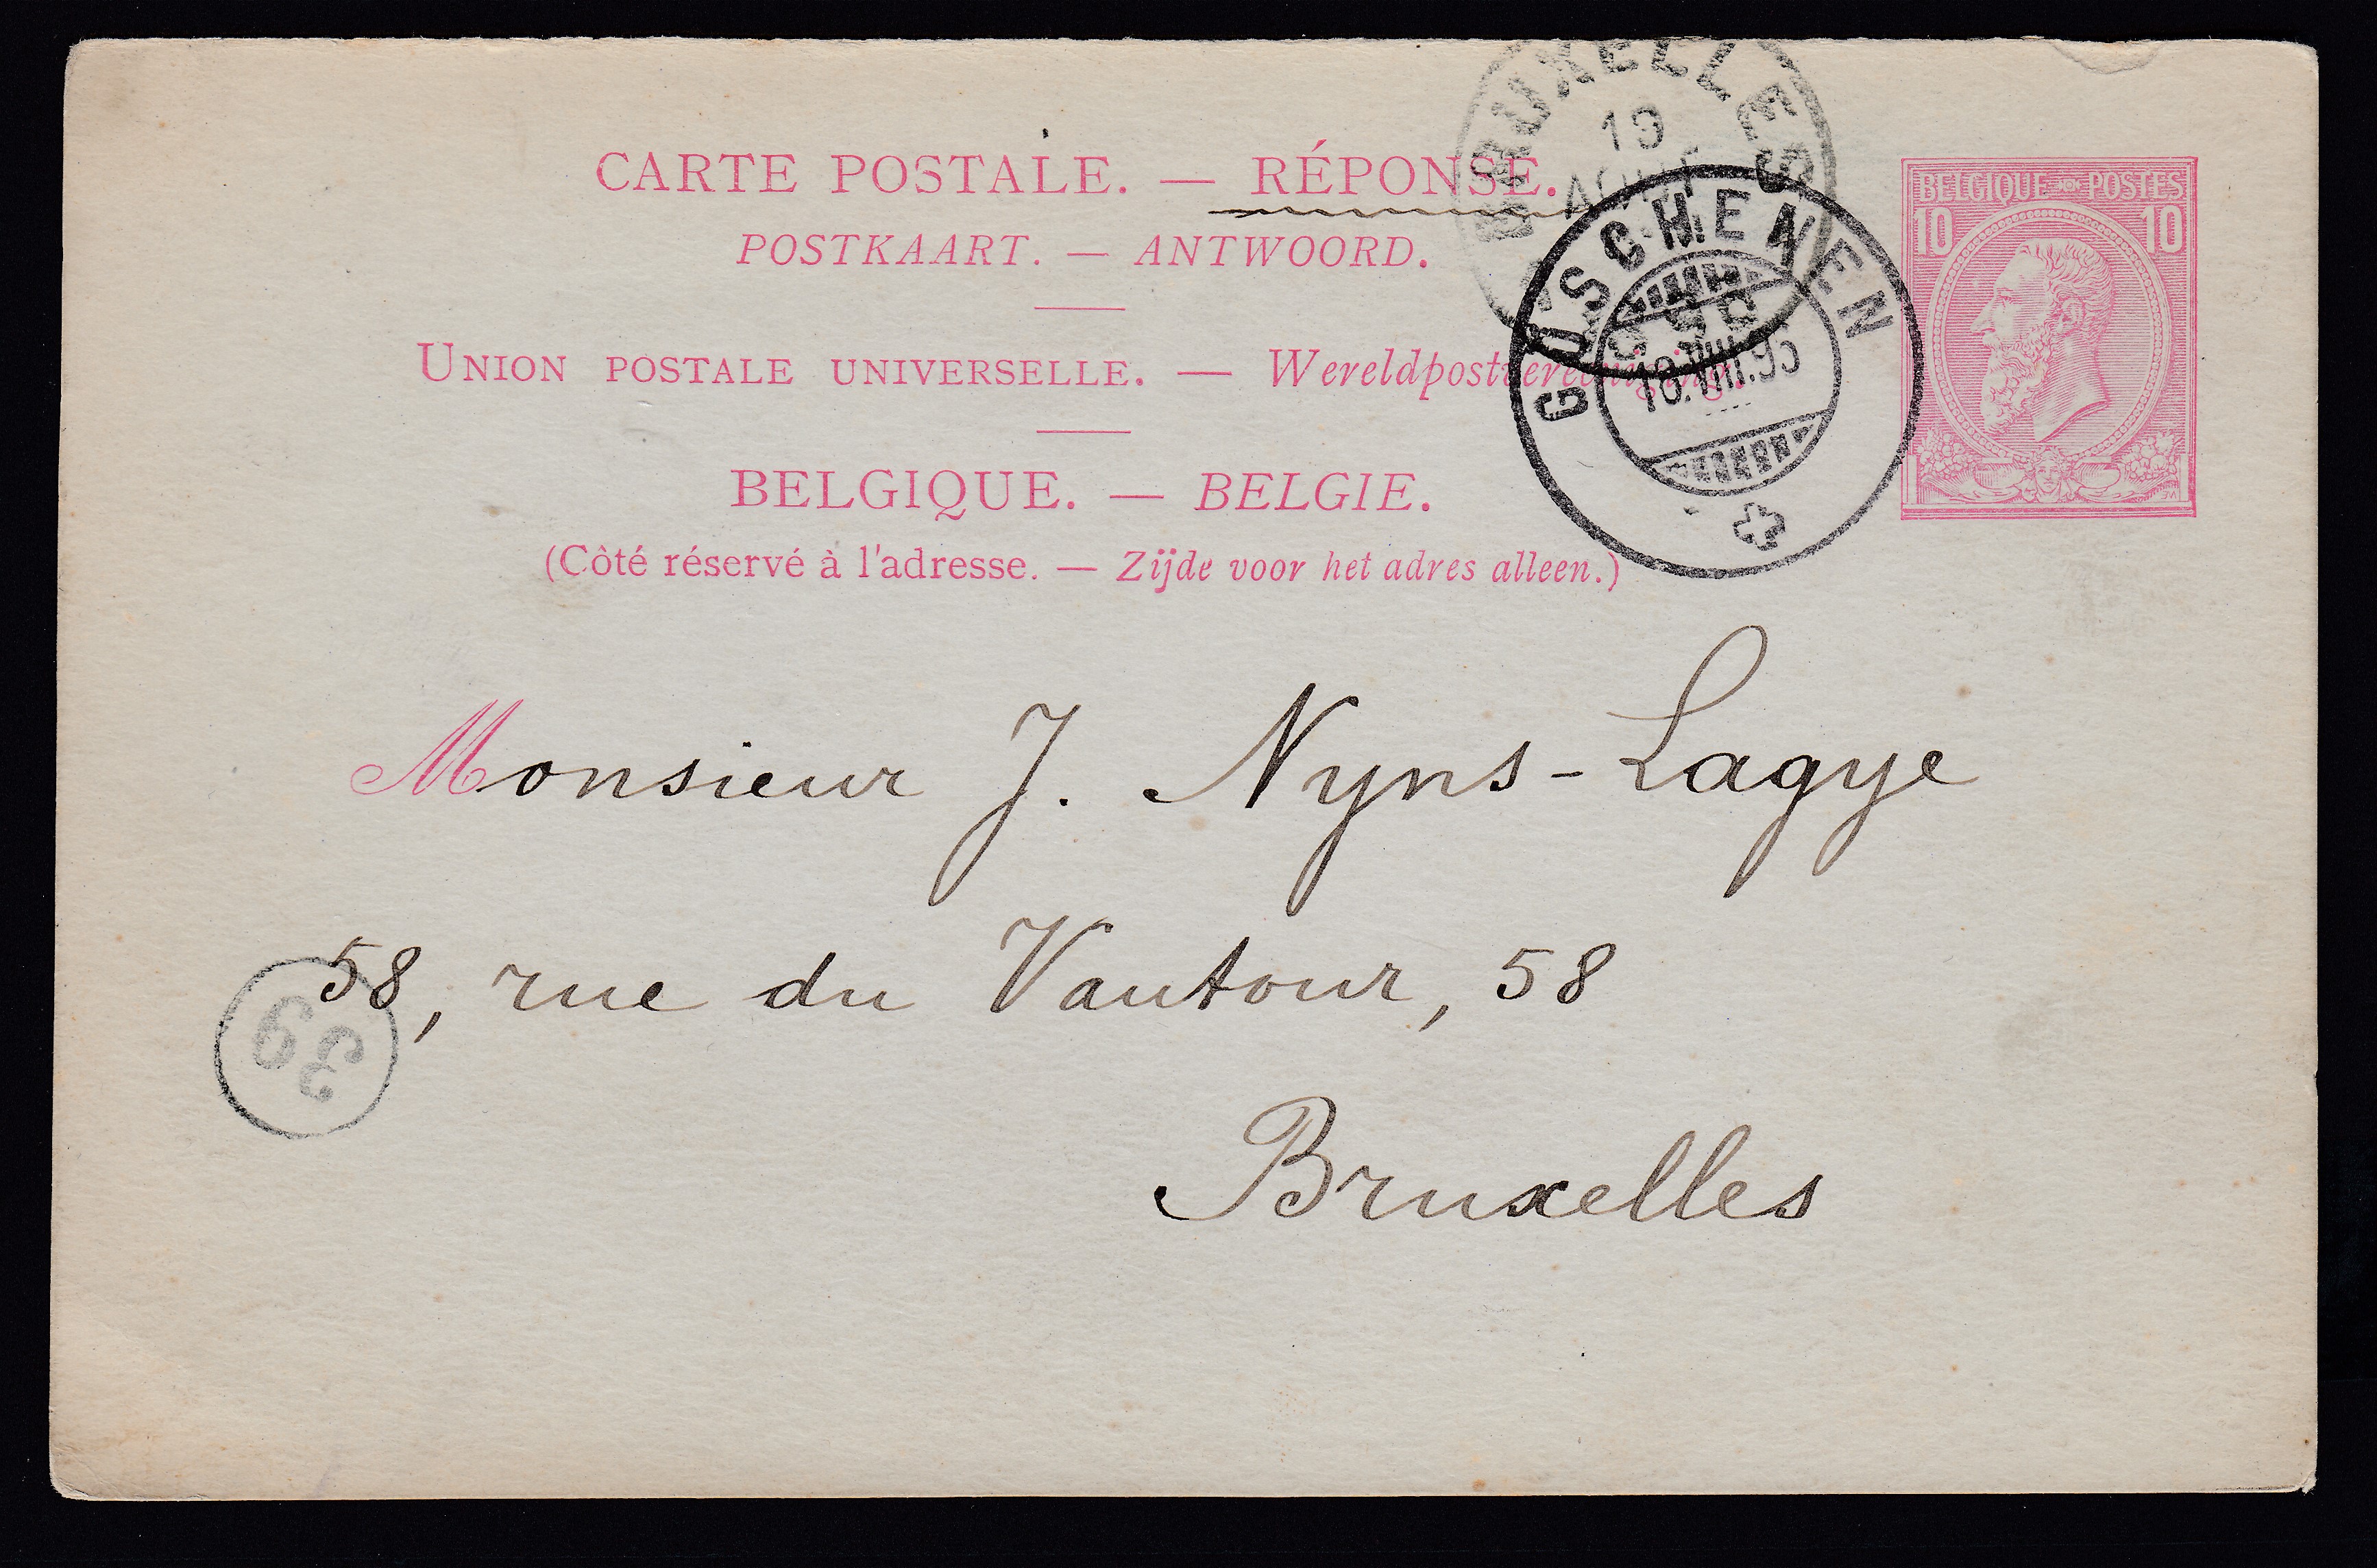 CARTE POSTALE. — RÉPONSE.
POSTKAART. — ANTWOORD.
UNION POSTALE UNIVERSELLE. — Wereldpostvereeniging.
BELGIQUE. — BELGIE.
(Côté réservé à l'adresse. — Zijde voor het adres alleen.)
BRUXELLES
19
AOUT
GÖSCHENEN
18.VIII.95
BELGIQUE POSTES
10 10
Monsieur J. Nyns-Lagye
58, rue du Vautour, 58
Bruxelles
39